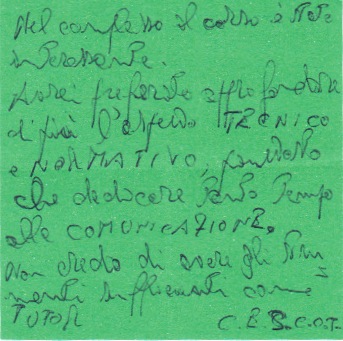 Nel complesso il corso è stato
interessante.
Avrei preferito approfondire
di più l'aspetto TECNICO
e NORMATIVO, piuttosto
che dedicare tanto tempo
alla COMUNICAZIONE.
Non credo di avere gli stru=
menti sufficienti come
TUTOR
C.B.S.C.O.T.